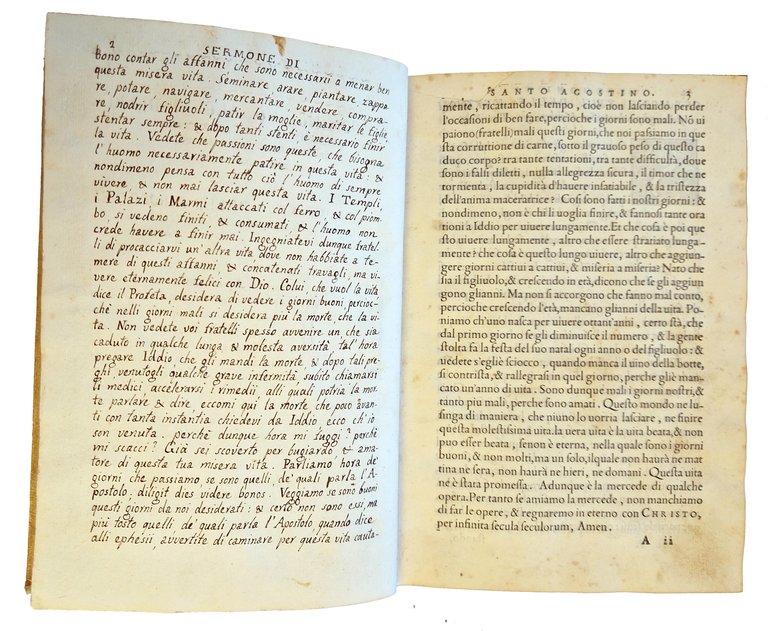 2
SERMONE DI
bono contar gli affanni che sono necessarii a menar ben
questa misera vita. Seminare, arare, piantare, zappa
re, potare, navigare, mercantare, vendere, compra-
re, nodrir figliuoli, patir la moglie, maritar le figlie,
stentar sempre: & dopo tanti stenti, è necessario finir
la vita. Vedete che passioni sono queste, che bisogna
l'huomo necessariamente patire in questa vita: &
nondimeno pensa con tutto ciò l'huomo di sempre
vivere, & non mai lasciar questa vita. I Templi,
i Palazi, i Marmi attaccati col ferro, & col piom-
bo, si vedeno finiti, & consumati, & l'huomo non
crede havere a finir mai. Ingegniatevi dunque fratel-
li di procacciarvi un'altra vita dove non habbiate a te-
mere di questi affanni, & concatenati travagli, ma vi-
vere eternamente felici con Dio. Colui, che vuol la vita
dice il Profeta, desidera di vedere i giorni buoni, percioc-
chè nelli giorni mali si desidera più la morte, che la vi-
ta. Non vedete voi fratelli spesso avvenire un che sia
caduto in qualche lunga & molesta aversità tal'hora
pregare Iddio che gli mandi la morte, & dopo tali pre-
ghi, venutogli qualche grave infermità, subito chiamarsi
i medici accelerarsi i rimedii, alli quali potria la mor-
te parlare & dire, eccomi qui la morte che poco avan-
ti con tanta instantia chiedevi da Iddio, ecco ch'io
son venuta. perchè dunque hora mi fuggi? perchè
mi scacci? Già sei scoverto per bugiardo, & ama-
tore di questa tua misera vita. Parliamo hora de'
giorni che passiamo se sono quelli, de' quali parla l'A-
postolo. diligit dies videre bonos. Veggiamo se sono buoni
questi giorni da noi desiderati: & certo non sono essi, ma
più tosto quelli de' quali parla l'Apostolo quando dice
alli ephesii, avvertite di caminare per questa vita cauta-
SANTO AGOSTINO. 3
mente, ricattando il tempo, cioè non lasciando perder
l'occasioni di ben fare, percioche i giorni sono mali. Nō ui
paiono (fratelli) mali questi giorni, che noi passiamo in que
sta corruttione di carne, sotto il grauoso peso di questo ca
duco corpo? tra tante tentationi, tra tante difficultà, doue
sono i falsi diletti, nulla allegrezza sicura, il timor che ne
tormenta, la cupidità d'hauere insatiabile, & la tristezza
dell'anima maceratrice? Cosi sono fatti i nostri giorni: &
nondimeno, non è chi li uoglia finire, & fannosi tante ora
tioni a Iddio per uiuere lungamente. Et che cosa è poi que
sto uiuere lungamente, altro che essere stratiato lunga-
mente? che cosa è questo lungo uiuere, altro che aggiun-
gere giorni cattiui a cattiui, & miseria a miseria? Nato che
sia il figliuolo, & crescendo in età, dicono che se gli aggiun
gono glianni. Ma non si accorgono che fanno mal conto,
percioche crescendo l'età, mancano glianni della uita. Po-
niamo ch'uno nasca per uiuere ottant'anni, certo stà, che
dal primo giorno se gli diminuisce il numero, & la gente
stolta fa la festa del suo natal ogni anno o del figliuolo: &
uedete s'egli è sciocco, quando manca il uino della botte,
si contrista, & rallegrasi in quel giorno, perche gliè man-
cato un'anno di uita. Sono dunque mali i giorni nostri, &
tanto piu mali, perche sono amati. Questo mondo ne lu-
singa di maniera, che niuno lo uorria lasciare, ne finire
questa molestissima uita. la uera uita è la uita beata, & non
puo esser beata, senon è eterna, nella quale sono i giorni
buoni, & non molti, ma un solo, ilquale non haurà ne mat
tina ne sera, non haurà ne hieri, ne domani. Questa uita
ne è stata promessa. Adunque è la mercede di qualche
opera. Per tanto se amiamo la mercede, non manchiamo
di far le opere, & regnaremo in eterno con CHRISTO,
per infinita secula seculorum, Amen.
A ii